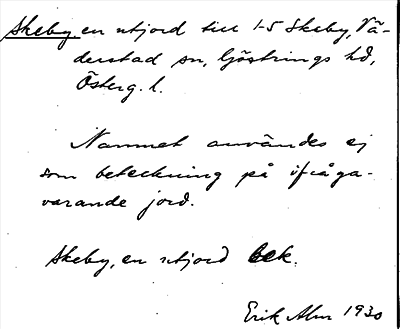 Skeby, en utjord till 1-5 Skeby, Vä-
derstad sn, Göstrings hd,
Österg. l.
Namnet användes ej
som beteckning på ifråga-
varande jord.
Skeby, en utjord bek.
Erik Alm 1930